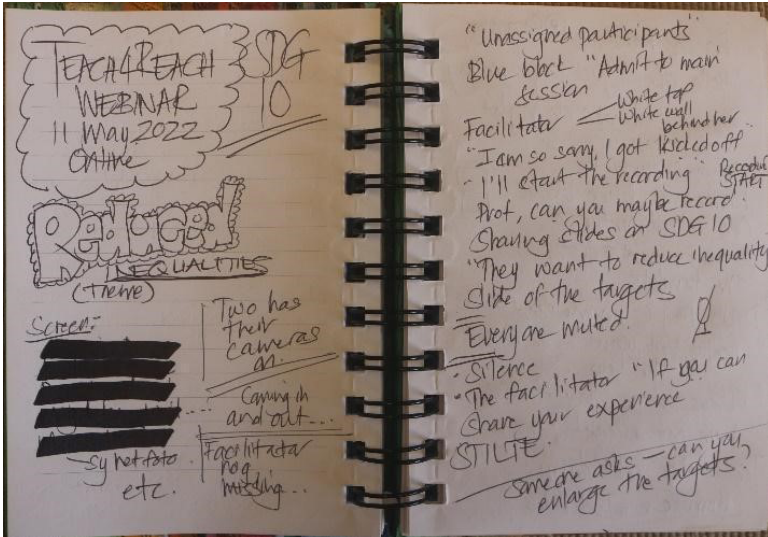 TEACH4REACH
WEBINAR
11 May 2022
Online
SDG
10
Reduced
INEQUALITIES
(Theme)
Screen:-
Two has
their
cameras
on.
Coming in
and out...
Facilitator
nog
missing...
sy het foto
etc.
"Unassigned participants"
Blue block "Admit to main
session
Facilitator
White top
White wall
behind her
"I am so sorry, I got kicked off
- I'll start the recording"
Recording
START
Prof, can you maybe record.
Sharing slides on SDG 10
"They want to reduce inequality
Slide of the targets
Everyone muted.
• Silence
• The facilitator "If you can
share your experience
STILTE.
Someone asks – can you
enlarge the targets?